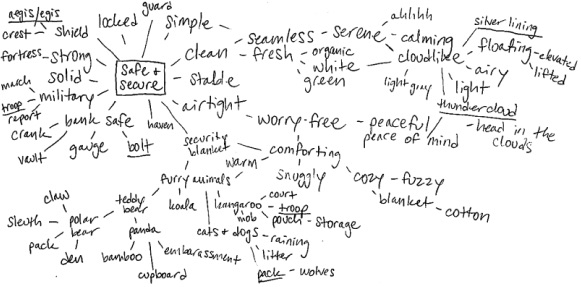 guard
aegis/egis
locked
simple
crest
shield
ahhhh
silver lining
seamless
serene
calming
fortress
strong
clean
fresh
organic
white
green
cloudlike
floating
elevated
lifted
solid
safe +
secure
stable
light gray
airy
light
march
troop
report
military
airtight
thundercloud
bank safe
haven
worry-free
peaceful
peace of mind
head in the
clouds
crank
vault
gauge
bolt
security
blanket
warm
comforting
snuggly
cozy
fuzzy
furry animals
blanket
cotton
claw
teddy
bear
koala
kangaroo
court
mob
troop
pouch
storage
sleuth
polar
bear
panda
cats + dogs
raining
pack
den
bamboo
cupboard
embarassment
litter
pack
wolves